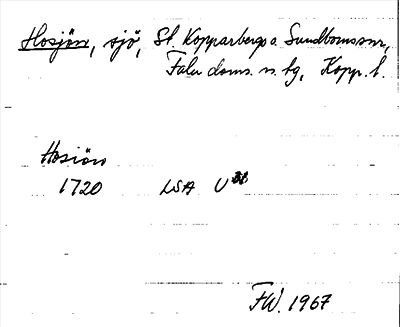 Hosjön, sjö, St. Kopparbergs o. Sundbornssnr,
Falu doms. n. tg, Kopp. l.
Hosiön
1720 LSA U
FW. 1967